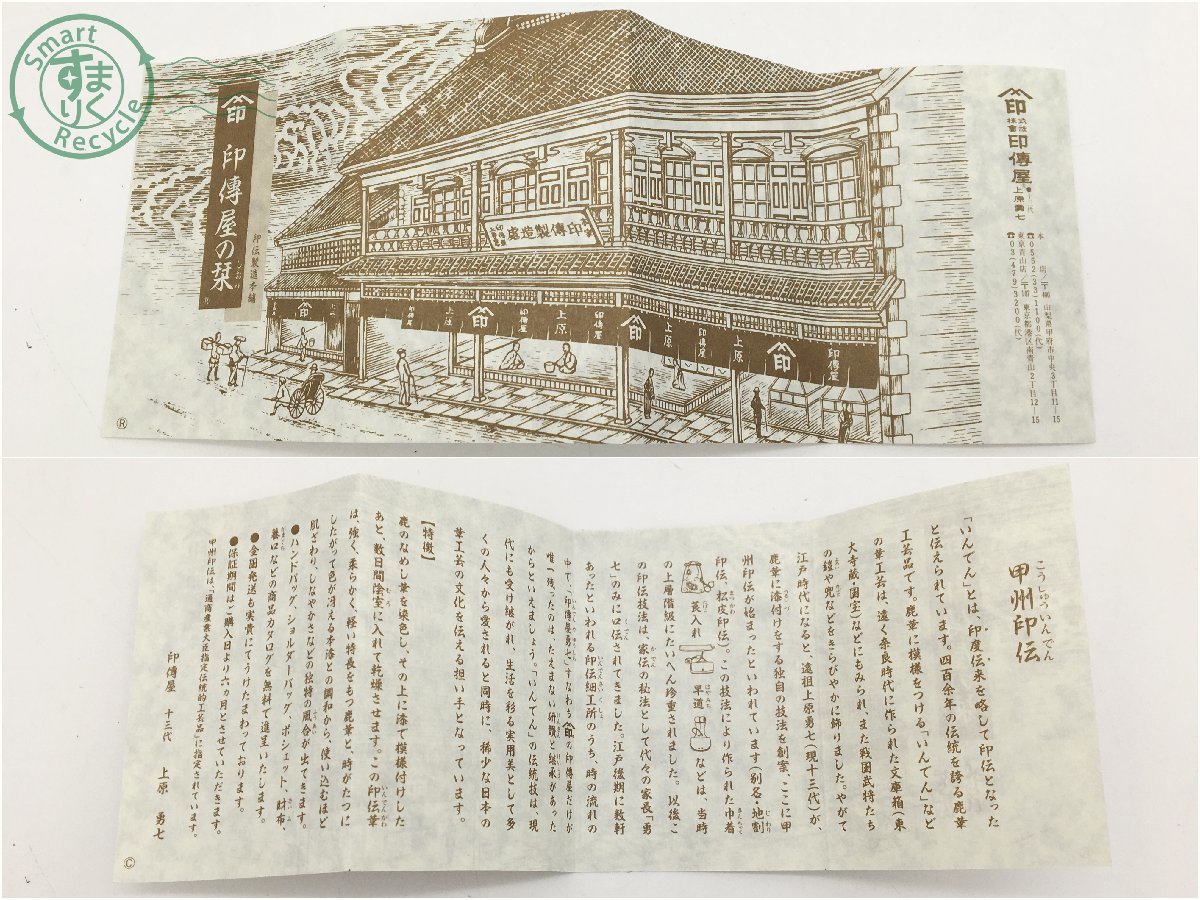 Smart
すまりく
Recycle
印
印傳屋の栞
印伝製造本舗
印傳製造所
印
印傳屋
上原
印
印傳屋
上原
印傳屋
印
上原
印傳屋
上原
印
印傳屋
印
株式会社
印傳屋
上原勇七
本店/〒400 山梨県甲府市中央3丁目11-15
☎0552(33)1100(代)
東京青山店/〒107 東京都港区南青山2丁目12-15
☎03(479)3200(代)
®
こうしゅういんでん
甲州印伝
「いんでん」とは、印度伝来を略して印伝となった
と伝えられています。四百余年の伝統を誇る鹿革
工芸品です。鹿革に模様をつける「いんでん」など
の革工芸は、遠く奈良時代に作られた文庫箱(東
大寺蔵・国宝)などにもみられ、また戦国武将たち
の鎧や兜などをきらびやかに飾りました。やがて
江戸時代になると、遠祖上原勇七(現十三代)が、
鹿革に漆付けをする独自の技法を創案、ここに甲
州印伝が始まったといわれています(別名・地割
印伝、松皮印伝)。この技法により作られた巾着
莨入れ
早道
などは、当時
の上層階級にたいへん珍重されました。以後こ
の印伝技法は、家伝の秘法として代々の家長「勇
七」のみに口伝されてきました。江戸後期に数軒
あったといわれる印伝細工所のうち、時の流れの
中で、「印傳屋勇七」すなわち印の印傳屋だけが
唯一残ったのは、たえまない研鑽と継承があった
からといえましょう。「いんでん」の伝統技は、現
代にも受け継がれ、生活を彩る実用美として多
くの人々から愛されると同時に、稀少な日本の
革工芸の文化を伝える担い手となっています。
【特徴】
鹿のなめし革を染色し、その上に漆で模様付けした
あと、数日間陰室に入れて乾燥させます。この印伝革
は、強く、柔らかく、軽い特長をもつ鹿革と、時がたつに
したがって色が冴える本漆との調和から、使い込むほど
肌ざわり、しなやかさなどの独特の風合が出てきます。
●ハンドバッグ、ショルダーバッグ、ポシェット、財布、
蟇口などの商品カタログを無料で進呈いたします。
●全国発送も実費にてうけたまわっております。
●保証期間はご購入日より六ヵ月とさせていただきます。
甲州印伝は、「通商産業大臣指定伝統的工芸品」に指定されています。
印傳屋 十三代 上原 勇七
©